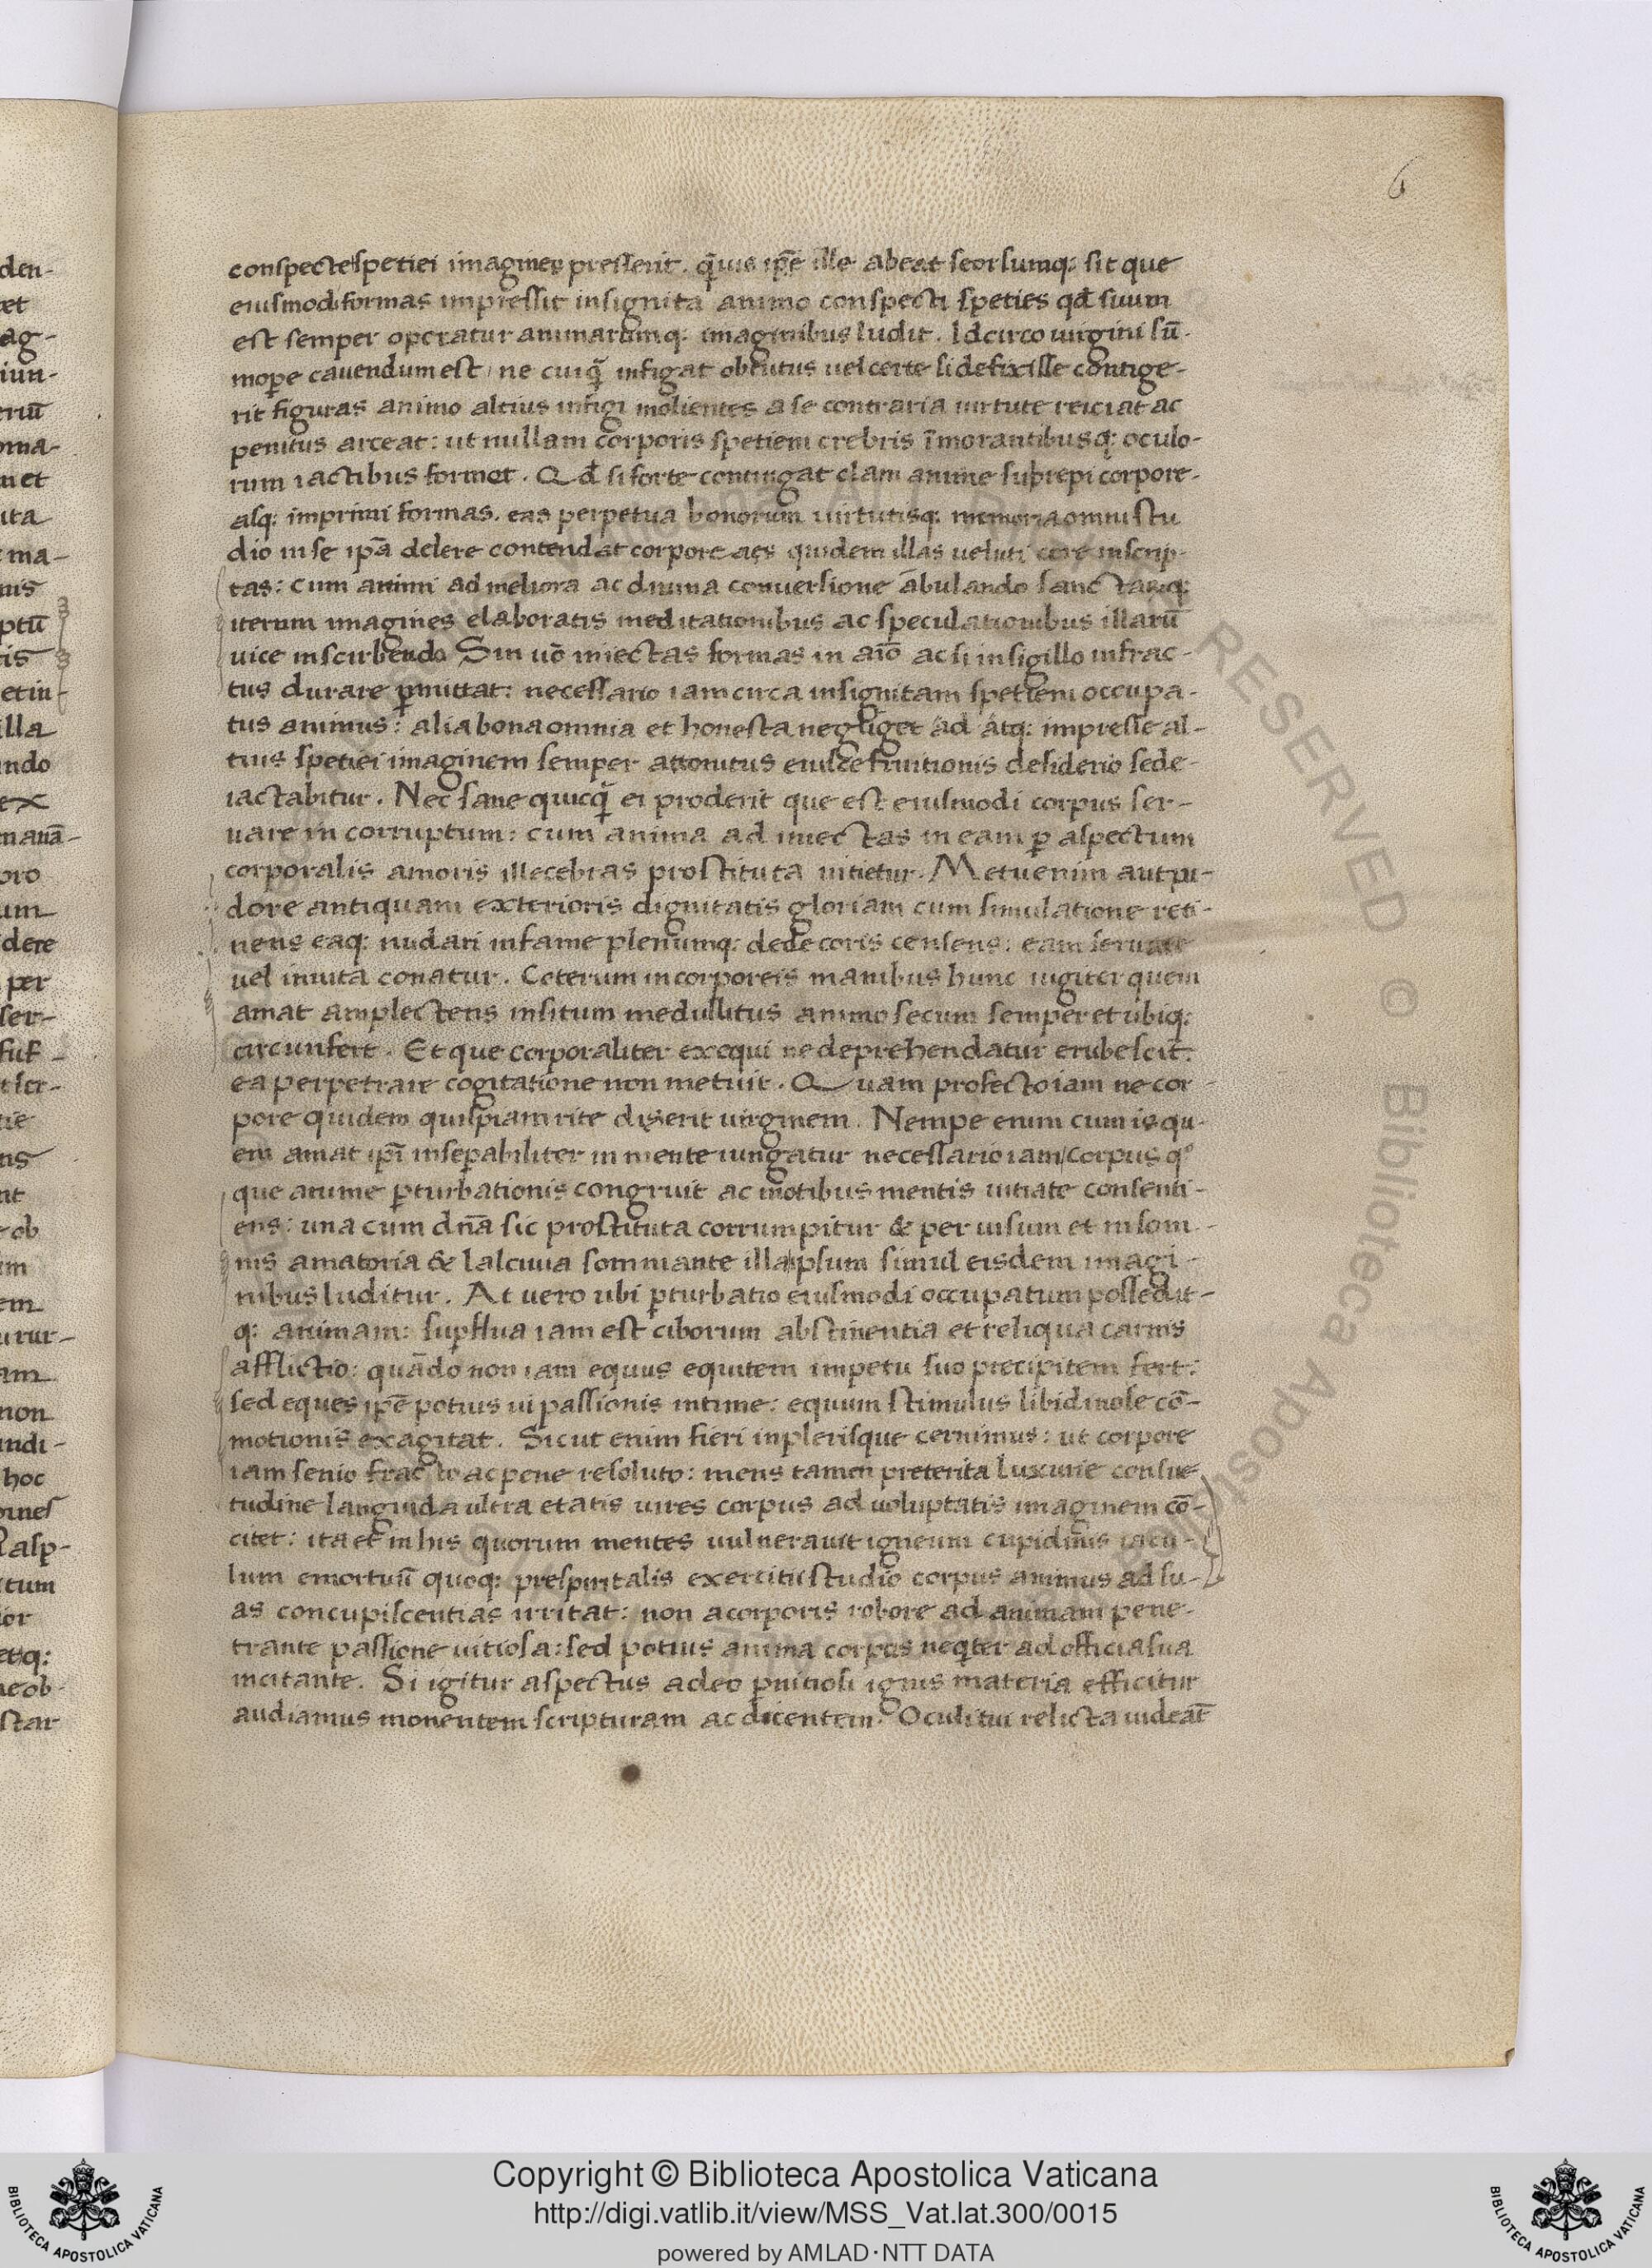 6
conspecte spetiei imagines presserit. q̄uis ip̄e ille abeat seorsumq; sit que
eiusmodi formas impressit insignita animo conspecti speties qđ suum
est semper operatur animarumq; imaginibus ludit. Idcirco uirgini sū-
mope cauendum est, ne cuiq̄ infigat obtutus uel certe si defixisse contige-
rit figuras animo altius infigi molientes a se contraria uirtute reiciat ac
penitus arceat: ut nullam corporis spetiem crebris īmorantibusq; oculo-
rum iactibus formet. Qđ si forte contingat clam anime subrepi corpore-
asq; imprimi formas. eas perpetua bonorum uirtutisq; memoria omni stu
dio in se ipā delere contendat corporeas quidem illas ueluti cere inscrip-
tas: cum animi ad meliora ac diuina conuersione ābulando sanctasq;
iterum imagines elaboratis meditationibus ac speculationibus illarū
uice inscribendo Sin uō iniectas formas in aīo ac si in sigillo infrac-
tus durare pmittat: necessario iam circa insignitam spetiem occupa-
tus animus: alia bona omnia et honesta negliget ad atq; impresse al-
tius spetiei imaginem semper attonitus eiusce fruitionis desiderio sede-
iactabitur. Nec sane quicq̄ ei proderit que est eiusmodi corpus ser-
uare in corruptum: cum anima ad iniectas in eam p aspectum
corporalis amoris illecebras prostituta uitietur. Metu enim aut pu-
dore antiquam exterioris dignitatis gloriam cum simulatione reti-
nens eaq; nudari infame plenumq; dedecoris censens: eam seruare
uel inuita conatur. Ceterum incorporeis manibus hunc iugiter quem
amat amplectens insitum medullitus animo secum semper et ubiq;
circunfert. Et que corporaliter exequi ne deprehendatur erubescit:
ea perpetrare cogitatione non metuit. Quam profecto iam ne cor-
pore quidem quispiam rite dixerit uirginem. Nempe enim cum is qu-
em amat ipī insepabiliter in mente iungatur necessario iam corpus qº
que anime pturbationis congruit ac motibus mentis uitiate consenti-
ens: una cum dnā sic prostituta corrumpitur & per uisum et in som-
nis amatoria & lasciuia somniante illa ipsum simul eisdem imagi-
nibus luditur. At uero ubi pturbatio eiusmodi occupatum possedit-
q; animam: supflua iam est ciborum abstinentia et reliqua carnis
afflictio: quādo non iam equus equitem impetu suo precipitem fert:
sed eques ipē potius ui passionis intime: equum stimulus libidinose cō-
motionis exagitat. Sicut enim fieri in plerisque cernimus: ut corpore
iam senio fracto ac pene resoluto: mens tamen preterita luxurie consue
tudine languida ultra etatis uires corpus ad uoluptatis imaginem cō-
citet: ita et in his quorum mentes uulnerauit igneum cupidinis iacu-
lum emortuū quoq; prespiritalis exercitii studio corpus animus ad su-
as concupiscentias irritat: non a corporis robore ad animam pene-
trante passione uitiosa: sed potius anima corpus neqter ad officia sua
incitante. Si igitur aspectus adeo pnitiosi ignis materia efficitur
audiamus monentem scripturam ac dicentem. Oculi tui relicta uideāt
Copyright © Biblioteca Apostolica Vaticana
http://digi.vatlib.it/view/MSS_Vat.lat.300/0015
powered by AMLAD·NTT DATA